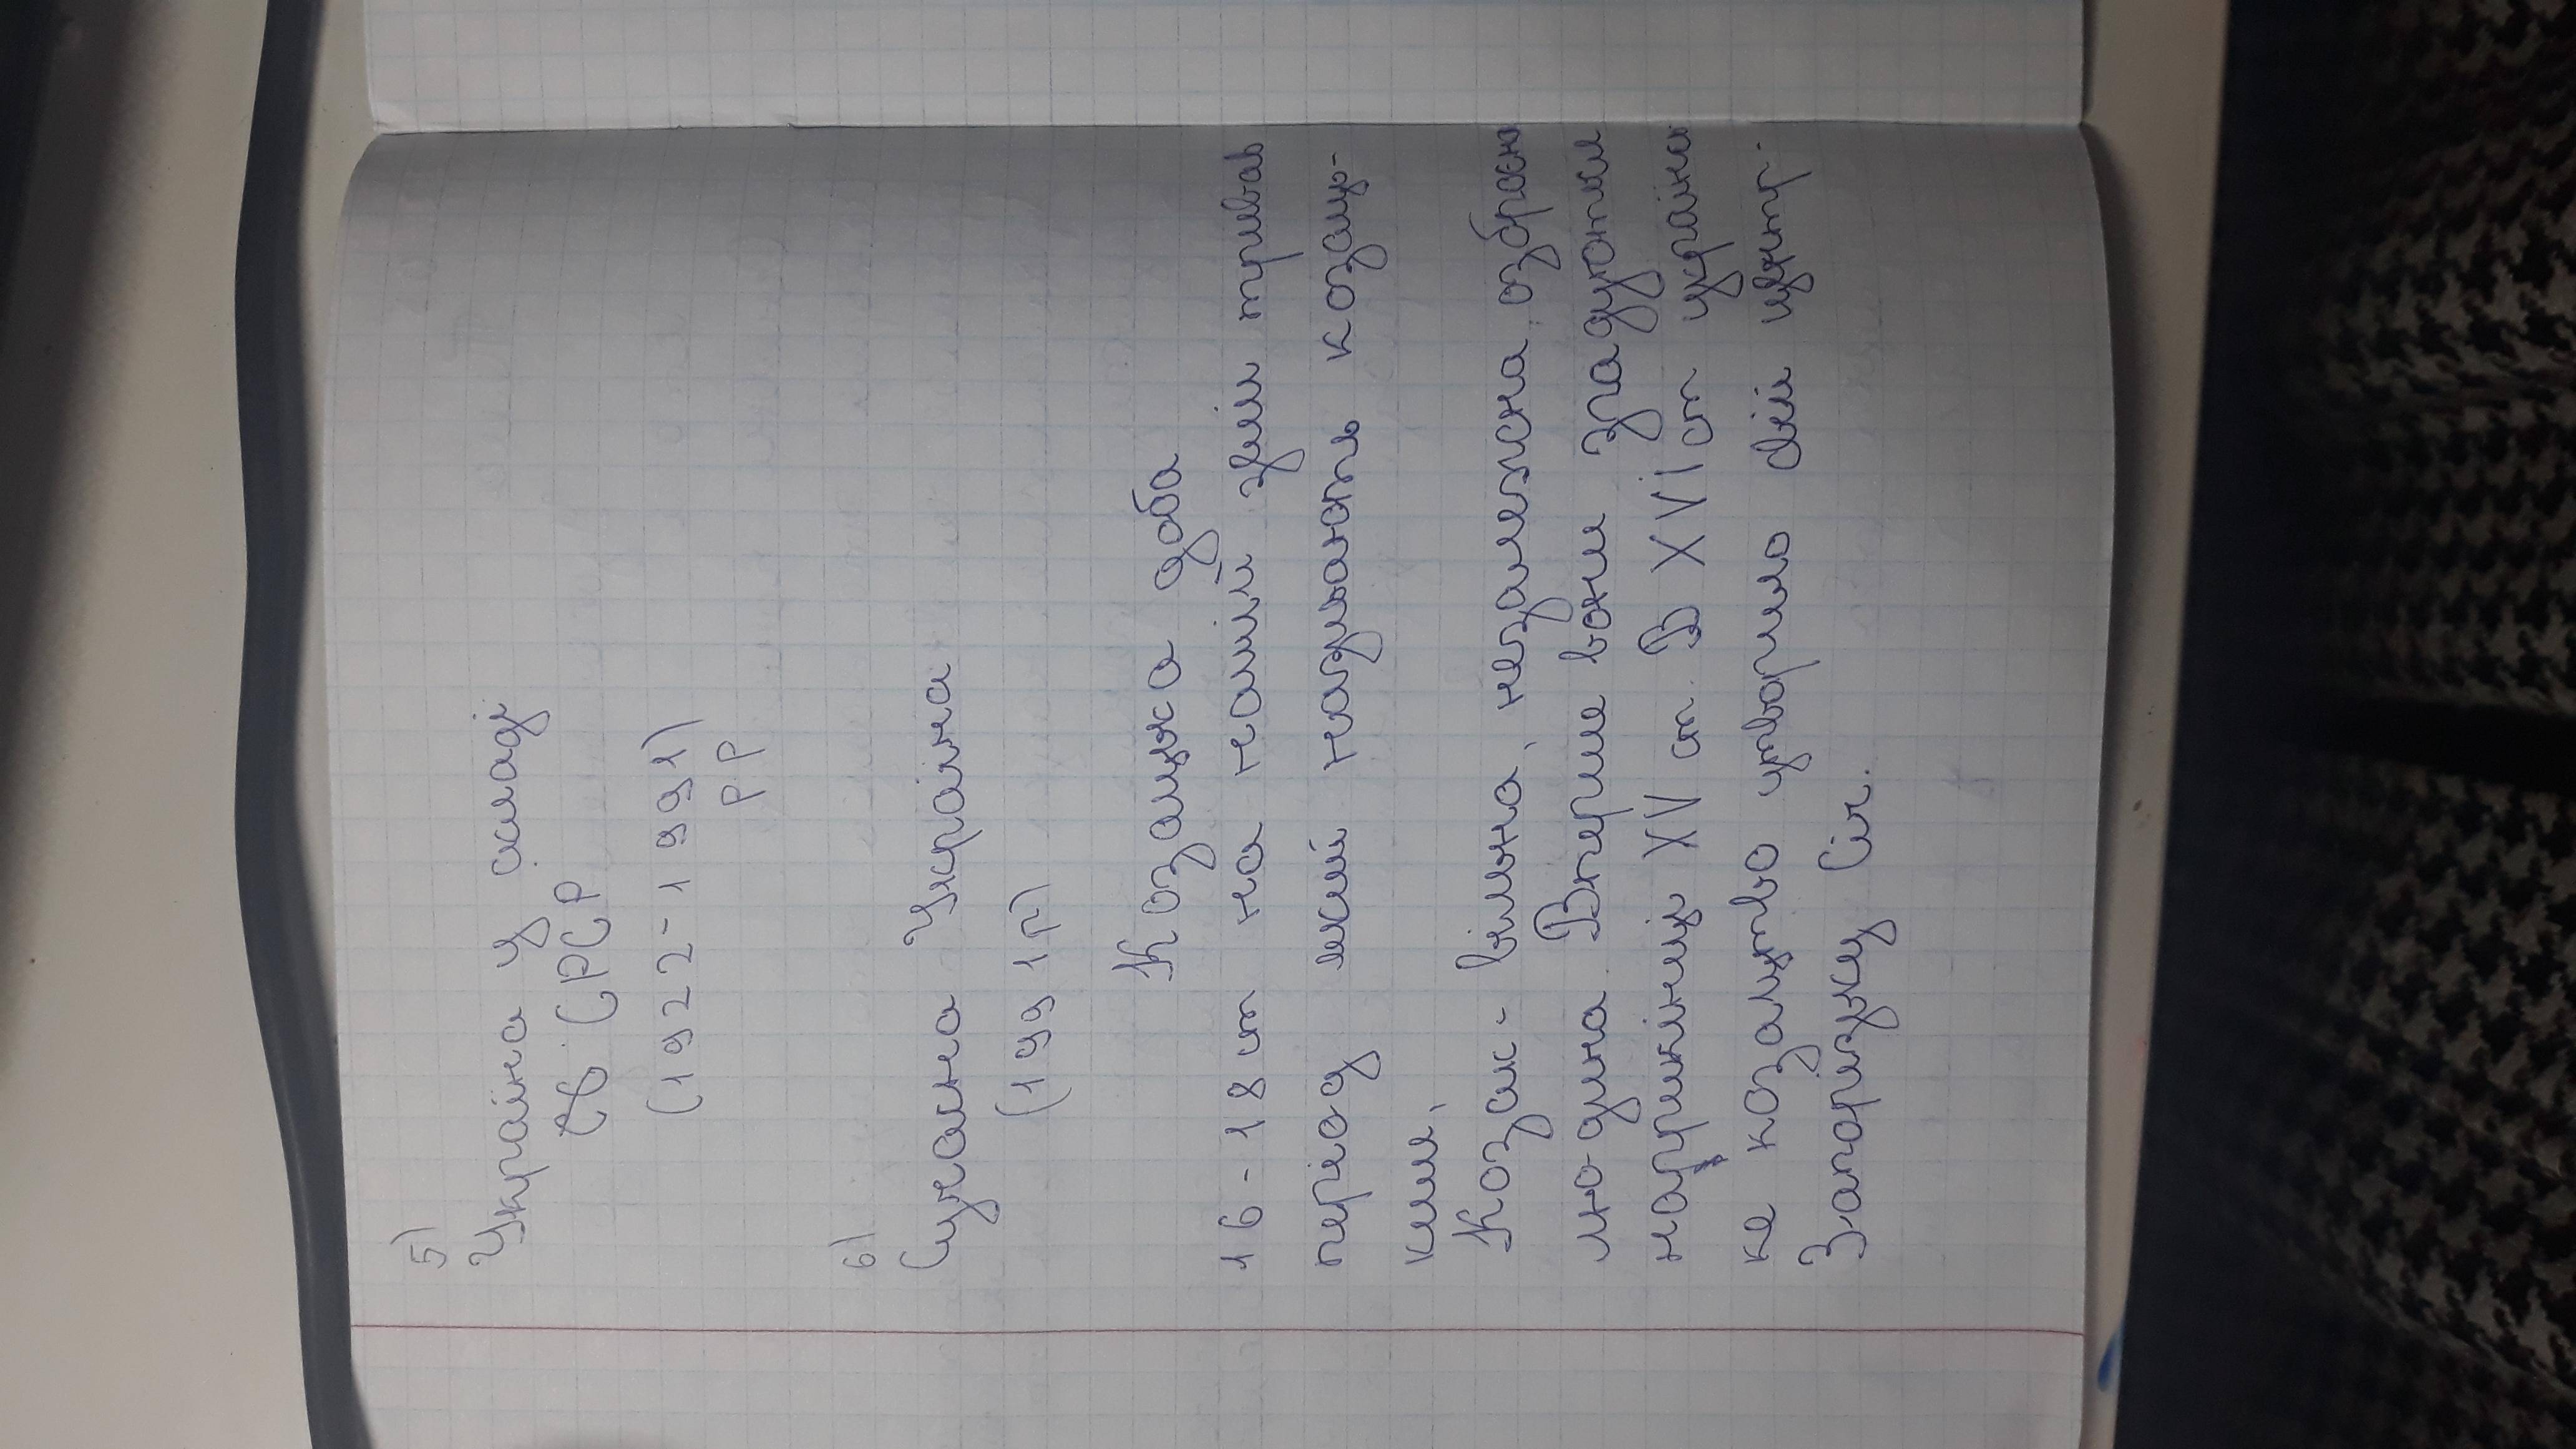 5)
Україна у складі
СРСР
(1922-1991)
рр
6)
Сучасна Україна
(1991р)
Козацька доба
16-18 ст на нашій землі тривав
період який називають козаць-
ким.
Козак - вільна, незалежна озброєн
людина. Вперше вони згадуються
наприкінці XV ст. В XVI ст українсь
ке козацтво утворило свій центр.
Запорізьку Січ.